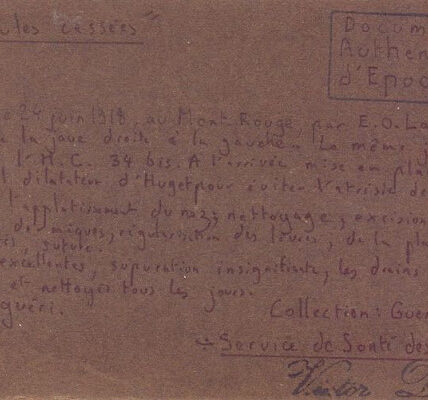 ules cassées"
Docum
Authen
d'Epoq
24 juin 1918, au Mont-Rouge, par E.O.
la joue droite à la gauche. Le même
l'H.C. 34 bis. A l'arrivée mise en pla
dilatateur d'Huget pour éviter l'atrésie de
l'applatissement du nez; nettoyage, excision
de moques, régularisation des lèvres, de la pla
suture.
excellentes, supuration insignifiante, les drains
et nettoyés tous les jours.
guéri.
Collection: Guer
Service de Santé des
Victor